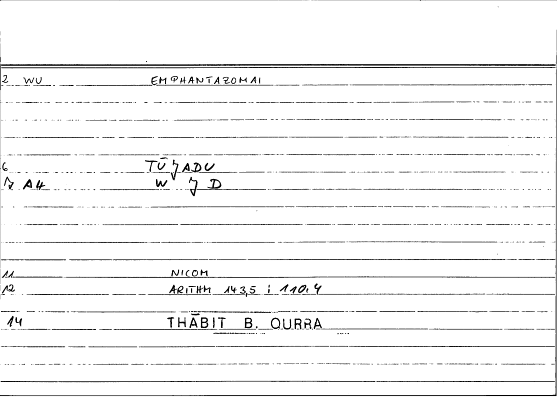 2 WU EMPHANTAZOMAI
6 TŪʿJADU
A4 W ʿJ D
11 NICOM
12 ARITHM 143,5 ; 110.4
14 THĀBIT B. QURRA